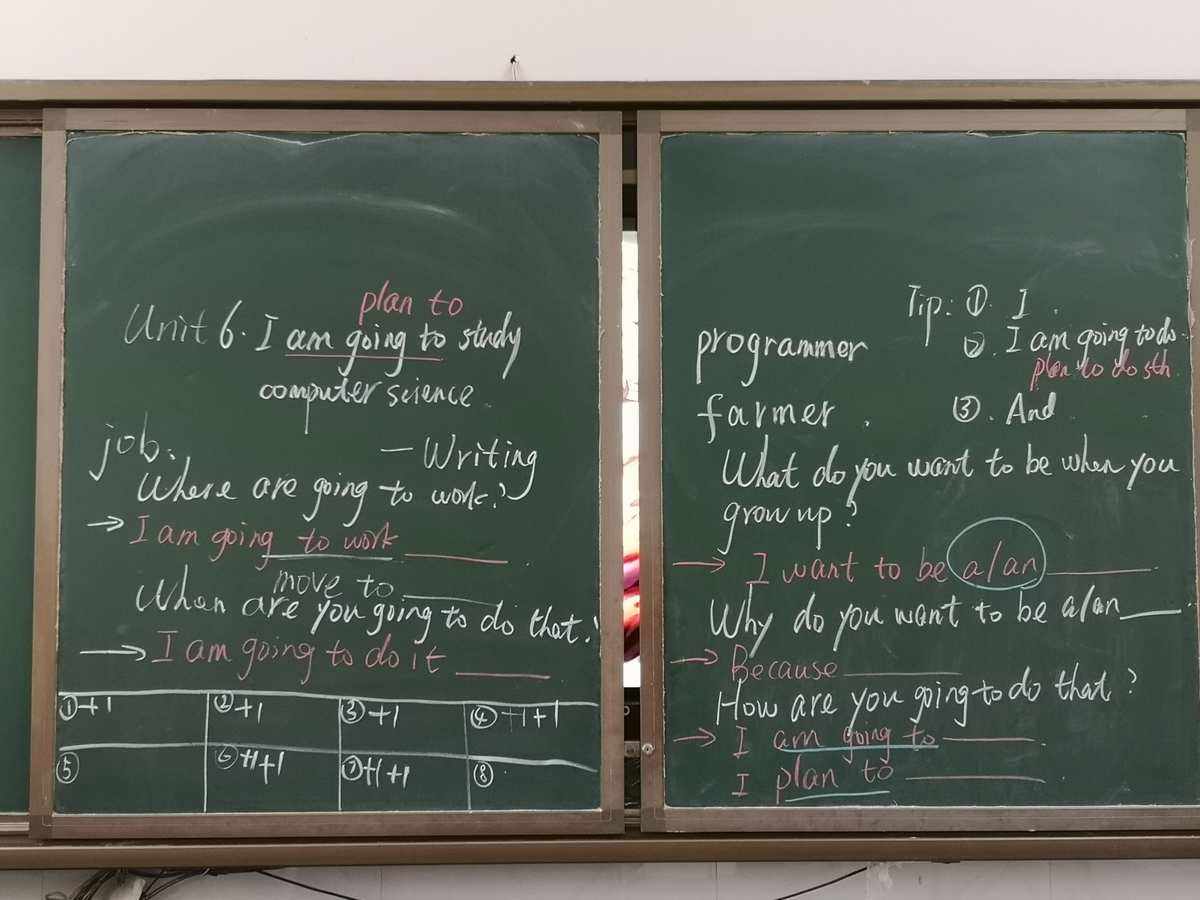 plan to
Unit 6. I am going to study
computer science.
job.
— Writing
Where are going to work?
→ I am going to work ______
move to ______
When are you going to do that?
→ I am going to do it ______
① +1 ② +1 ③ +1 ④ +1+1
⑤ ⑥ +1+1 ⑦ +1+1 ⑧
Tip: ① I.
programmer
② . I am going to do
plan to do sth.
farmer.
③ . And
What do you want to be when you
grow up?
→ I want to be a/an ______
Why do you want to be a/an ______
→ Because ______
How are you going to do that?
→ I am going to ______
I plan to ______